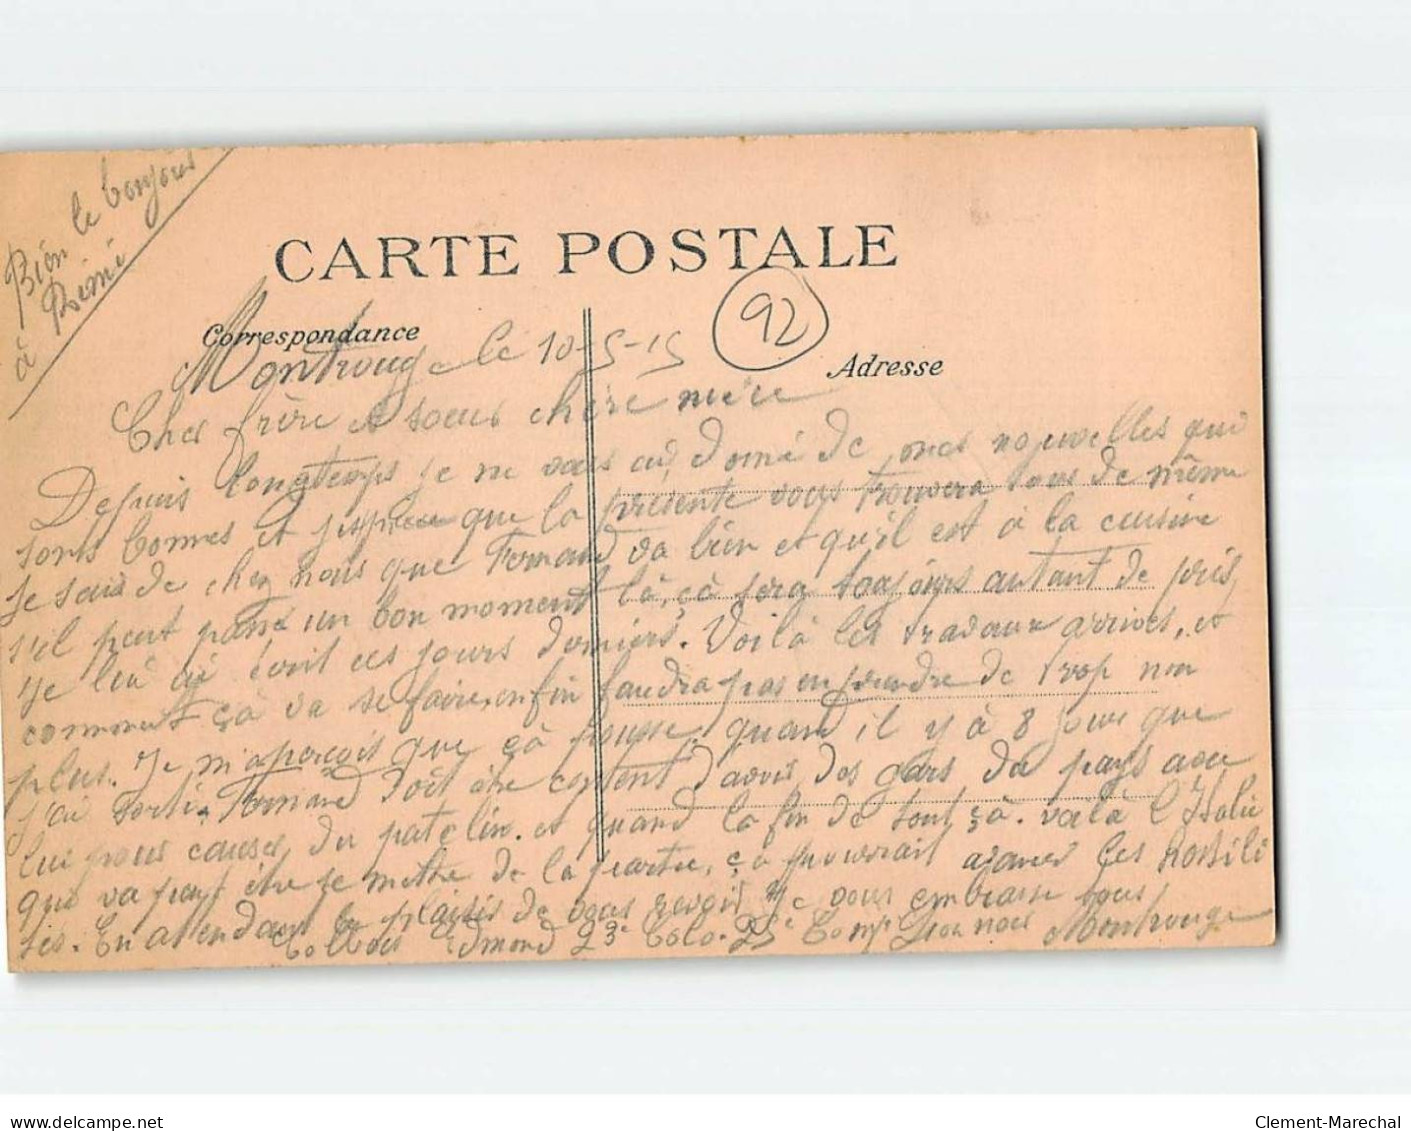 Bien le bonjour
à Rémi
CARTE POSTALE
Correspondance
92
Adresse
Montrouge le 10-5-15
Cher frère et soeur chère mère
Depuis longtemps je ne vous ai donné de mes nouvelles qui
sont bonnes et j'espère que la présente vous trouvera tous de même
Je sais de chez nous que Fernand va bien et qu'il est à la cuisine
s'il peut passé un bon moment là, çà sera toujours autant de pris,
Je lui ai écrit ces jours derniers. Voilà les travaux arrivés, et
comment çà va se faire, enfin faudra pas en prendre de trop non
plus. Je m'aperçois que çà pousse. quand il y à 8 jours que
j'ai sorti. Fernand doit être content d'avoir des gars du pays avec
lui pour causer du patelin. et quand la fin de tout çà. voilà l'Italie
qui va peut être se mettre de la partie, çà pourrait avancer les hostili
tés. En attendant le plaisir de vous revoir Je vous embrasse tous
Edmond 23e Colo. 25e Comp Montrouge
Clement-Marechal
www.delcampe.net